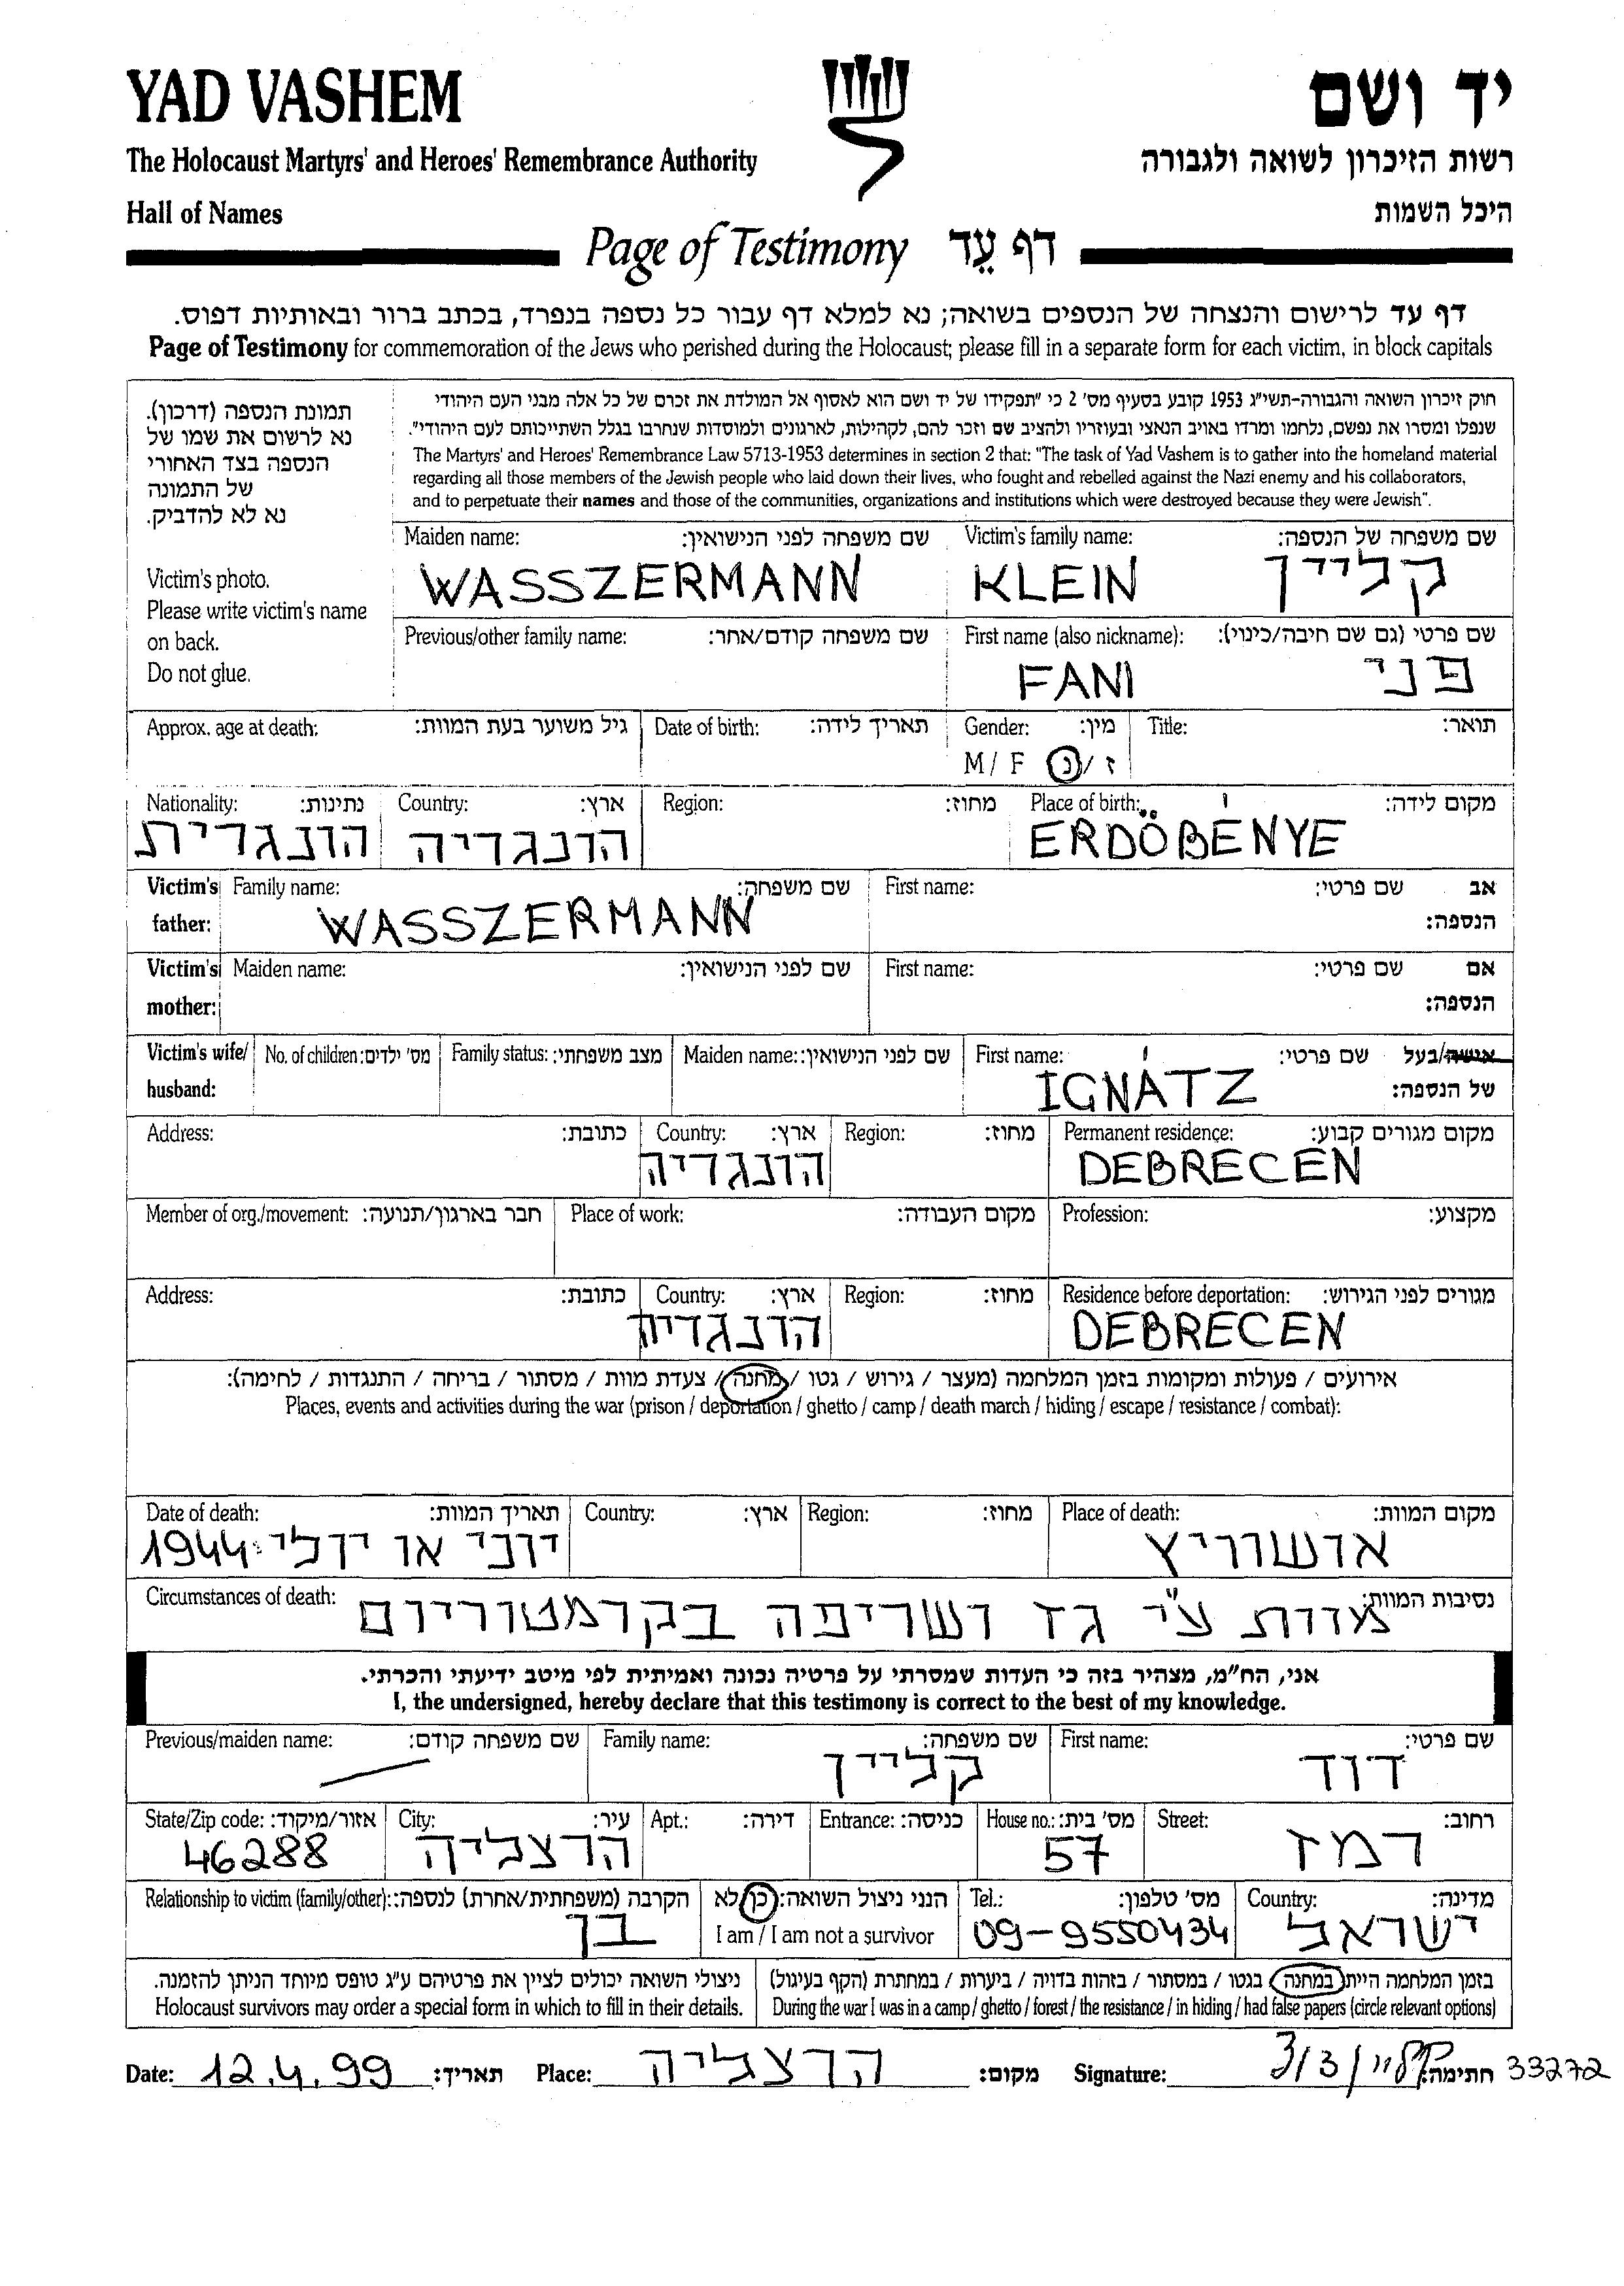 YAD VASHEM
יד ושם
The Holocaust Martyrs' and Heroes' Remembrance Authority
רשות הזיכרון לשואה ולגבורה
Hall of Names
היכל השמות
Page of Testimony דף עֵד
דף עד לרישום והנצחה של הנספים בשואה; נא למלא דף עבור כל נספה בנפרד, בכתב ברור ובאותיות דפוס.
Page of Testimony for commemoration of the Jews who perished during the Holocaust; please fill in a separate form for each victim, in block capitals
תמונת הנספה (דרכון).
נא לרשום את שמו של
הנספה בצד האחורי
של התמונה
נא לא להדביק.
Victim's photo.
Please write victim's name
on back.
Do not glue.
חוק זיכרון השואה והגבורה-תשי"ג 1953 קובע בסעיף מס' 2 כי "תפקידו של יד ושם הוא לאסוף אל המולדת את זכרם של כל אלה מבני העם היהודי
שנפלו ומסרו את נפשם, נלחמו ומרדו באויב הנאצי ובעוזריו ולהציב שם וזכר להם, לקהילות, לארגונים ולמוסדות שנחרבו בגלל השתייכותם לעם היהודי".
The Martyrs' and Heroes' Remembrance Law 5713-1953 determines in section 2 that: "The task of Yad Vashem is to gather into the homeland material
regarding all those members of the Jewish people who laid down their lives, who fought and rebelled against the Nazi enemy and his collaborators,
and to perpetuate their names and those of the communities, organizations and institutions which were destroyed because they were Jewish".
Maiden name: שם משפחה לפני הנישואין: Victim's family name: שם משפחה של הנספה:
WASSZERMANN KLEIN קליין
Previous/other family name: שם משפחה קודם/אחר: First name (also nickname): שם פרטי (גם שם חיבה/כינוי):
FANI פני
Approx. age at death: גיל משוער בעת המוות: Date of birth: תאריך לידה: Gender: מין: Title: תואר:
M / F ז / נ
Nationality: נתינות: Country: ארץ: Region: מחוז: Place of birth: מקום לידה:
הונגרית הונגריה ERDÖBÉNYE
Victim's father: Family name: שם משפחה: First name: שם פרטי: אב הנספה:
WASSZERMANN
Victim's mother: Maiden name: שם לפני הנישואין: First name: שם פרטי: אם הנספה:
Victim's wife/ husband: No. of children: מס' ילדים: Family status: מצב משפחתי: Maiden name: שם לפני הנישואין: First name: שם פרטי: אישה/בעל של הנספה:
IGNÁTZ
Address: כתובת: Country: ארץ: Region: מחוז: Permanent residence: מקום מגורים קבוע:
הונגריה DEBRECEN
Member of org./movement: חבר בארגון/תנועה: Place of work: מקום העבודה: Profession: מקצוע:
Address: כתובת: Country: ארץ: Region: מחוז: Residence before deportation: מגורים לפני הגירוש:
הונגריה DEBRECEN
אירועים / פעולות ומקומות בזמן המלחמה (מעצר / גירוש / גטו / מחנה / צעדת מוות / מסתור / בריחה / התנגדות / לחימה):
Places, events and activities during the war (prison / deportation / ghetto / camp / death march / hiding / escape / resistance / combat):
Date of death: תאריך המוות: Country: ארץ: Region: מחוז: Place of death: מקום המוות:
יוני או יולי 1944 אושוויץ
Circumstances of death: נסיבות המוות:
מוות ע"י גז ושריפה בקרמטוריום
אני, הח"מ, מצהיר בזה כי העדות שמסרתי על פרטיה נכונה ואמיתית לפי מיטב ידיעתי והכרתי.
I, the undersigned, hereby declare that this testimony is correct to the best of my knowledge.
Previous/maiden name: שם משפחה קודם: Family name: שם משפחה: First name: שם פרטי:
קליין דוד
State/Zip code: אזור/מיקוד: City: עיר: Apt.: דירה: Entrance: כניסה: House no.: מס' בית: Street: רחוב:
46288 הרצליה 57 רמז
Relationship to victim (family/other): הקרבה (משפחתית/אחרת) לנספה: הנני ניצול השואה: כן/לא Tel.: מס' טלפון: Country: מדינה:
בן I am / I am not a survivor 09-9550434 ישראל
ניצולי השואה יכולים לציין את פרטיהם ע"ג טופס מיוחד הניתן להזמנה. בזמן המלחמה הייתי במחנה / בגטו / במסתור / בזהות בדויה / ביערות / במחתרת (הקף בעיגול)
Holocaust survivors may order a special form in which to fill in their details. During the war I was in a camp / ghetto / forest / the resistance / in hiding / had false papers (circle relevant options)
Date: 12.4.99 תאריך: Place: הרצליה מקום: Signature: חתימה: 33272